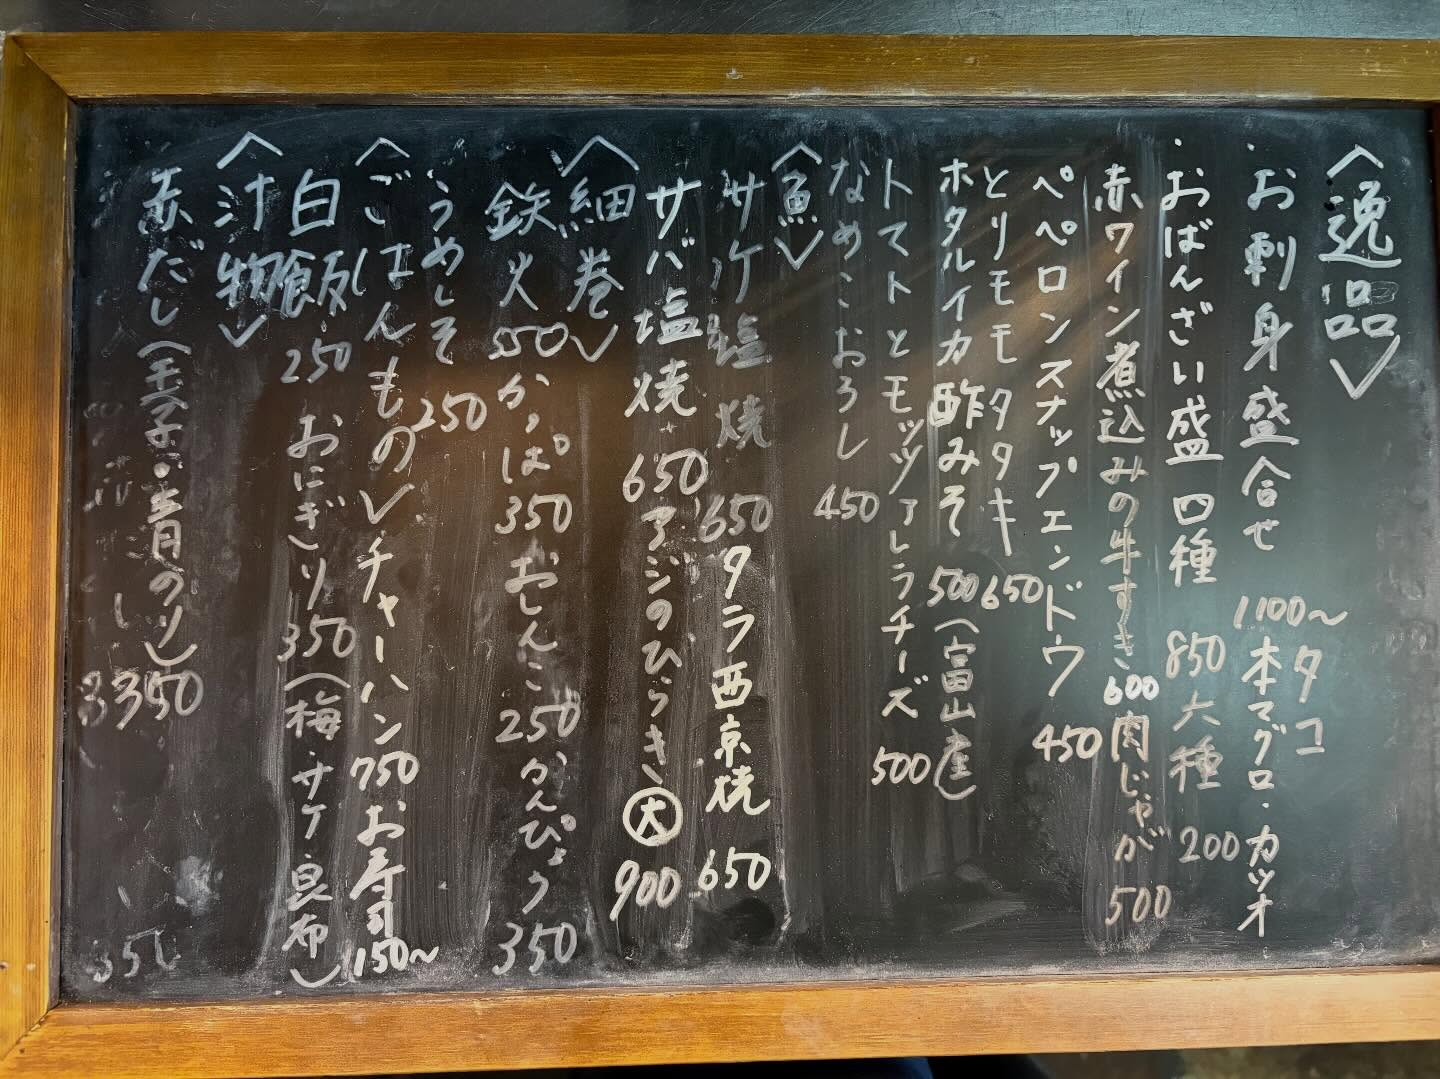 〈逸品〉
・お刺身盛合せ 1100〜 タコ
本マグロ・カツオ
・おばんざい盛 四種 850 六種 200
赤ワイン煮込みの牛すき 600 肉じゃが 500
ペペロンスナップエンドウ 450
とりモモタタキ 650
ホタルイカ酢みそ 500 (富山産)
トマトとモッツァレラチーズ 500
なめこおろし 450
〈魚〉
サケ塩焼 650 タラ西京焼 650
サバ塩焼 650 アジのひらき 大 900
〈細巻〉
鉄火 550 かっぱ 350 おしんこ 250 かんぴょう 350
うめしそ 250
〈ごはんもの〉チャーハン 750 お寿司 150〜
白飯 250 おにぎり 350 (梅・サケ・昆布)
〈汁物〉
赤だし(玉子・青のり) 350